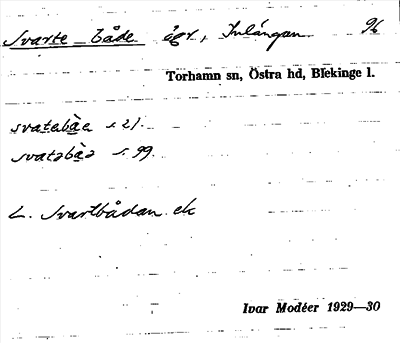 Svarte både ägr., Inlängan. 96
Torhamn sn, Östra hd, Blekinge l.
svatebàe s. 21.
svatəbàə s. 99.
L. Svartbådan ek
Ivar Modéer 1929—30